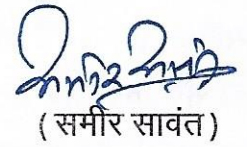 ( समीर सावंत )